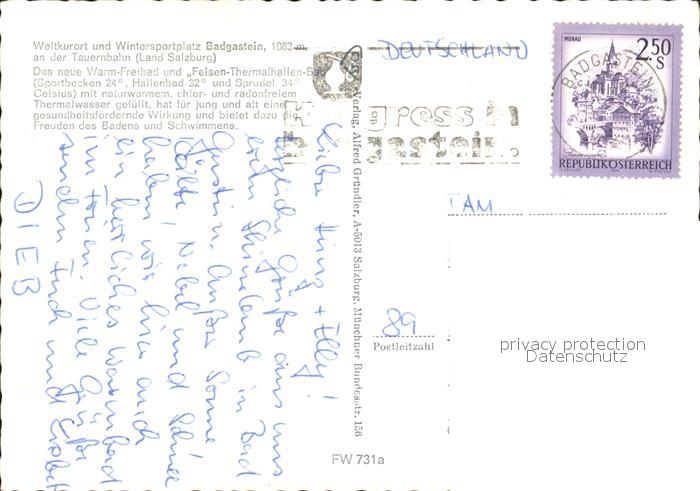 Weltkurort und Wintersportplatz Badgastein, 1083 m,
an der Tauernbahn (Land Salzburg)
Das neue Warm-Freibad und „Felsen-Thermalhallen-Bad
(Sportbecken 24°, Hallenbad 32° und Sprudel 34°
Celsius) mit naturwarmem, chlor- und radonfreiem
Thermalwasser gefüllt, hat für jung und alt eine
gesundheitsfördernde Wirkung und bietet dazu die
Freuden des Badens und Schwimmens.
DEUTSCHLAND
MURAU
2.50
S
REPUBLIK ÖSTERREICH
BADGASTEIN
Kongress in
gastein
Verlag, Alfred Gründler, A-5013 Salzburg, Münchner Bundesstr. 156
Liebe + Elly!
Grüße aus
in Bad
Gastein. Außer Sonne
Nebel und
haben wir hier auch
ein herrliches Warmbad
im Freien. Viele Grüße
senden Euch und
DIEB
TAM
89
Postleitzahl
privacy protection
Datenschutz
FW 731a